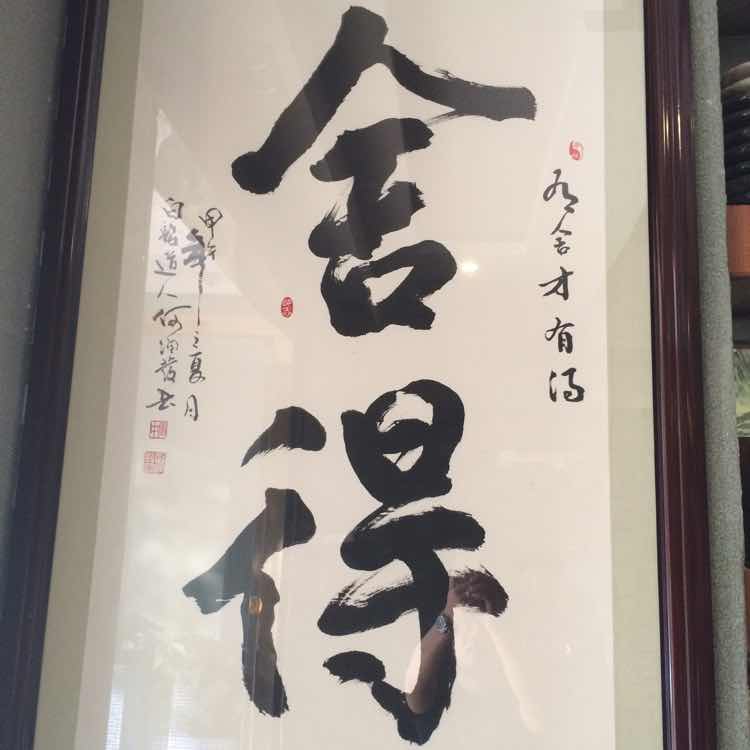 舍得
有舍才有得
甲午年之夏月
白鹤道人何润发书